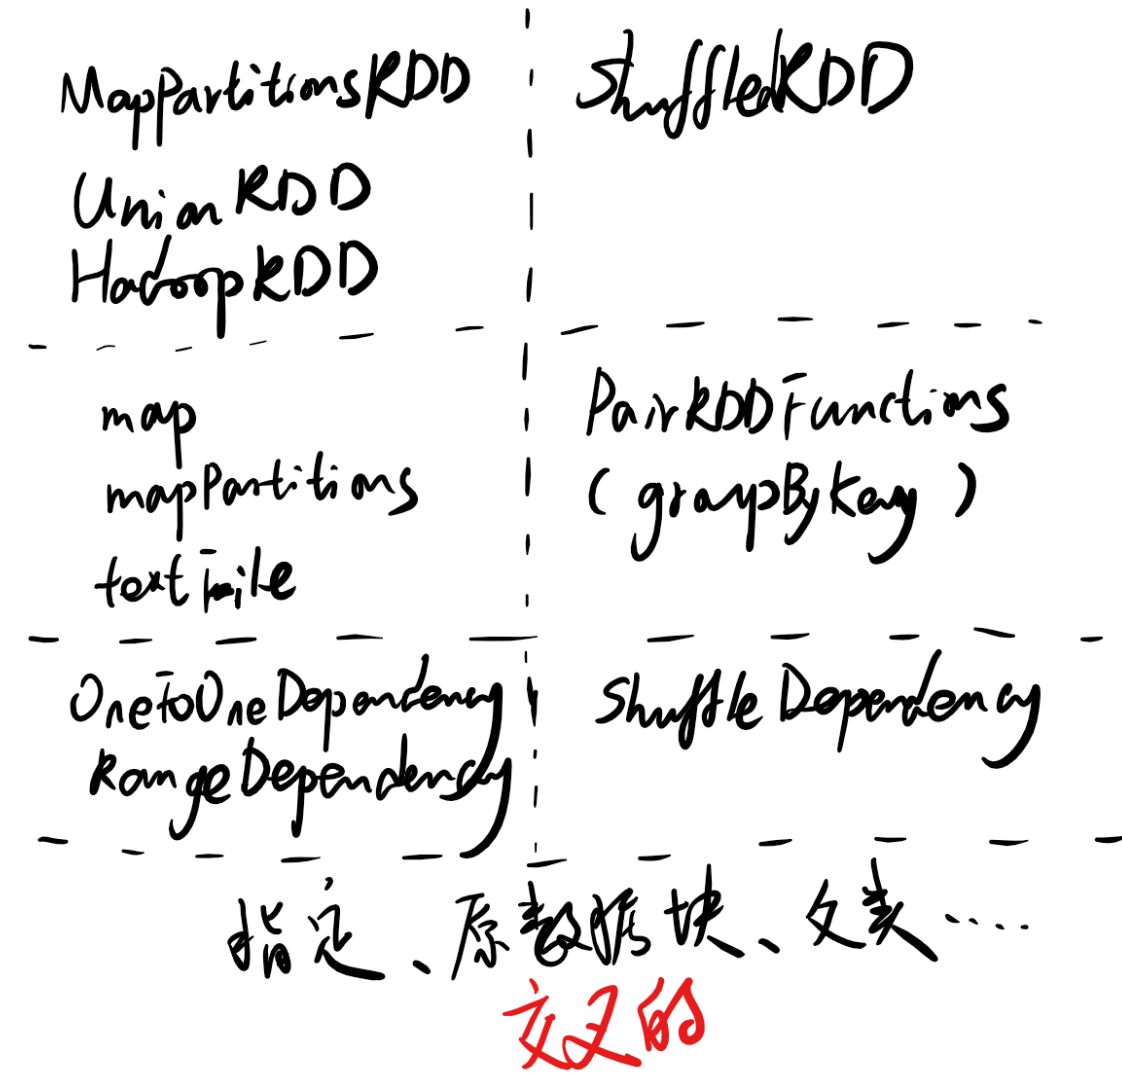 MapPartitionsRDD
ShuffledRDD
UnionRDD
HadoopRDD
map
mapPartitions
textFile
PairRDDFunctions
(groupByKey)
OneToOneDependency
RangeDependency
ShuffleDependency
指定、原数据块、父类……
交叉的